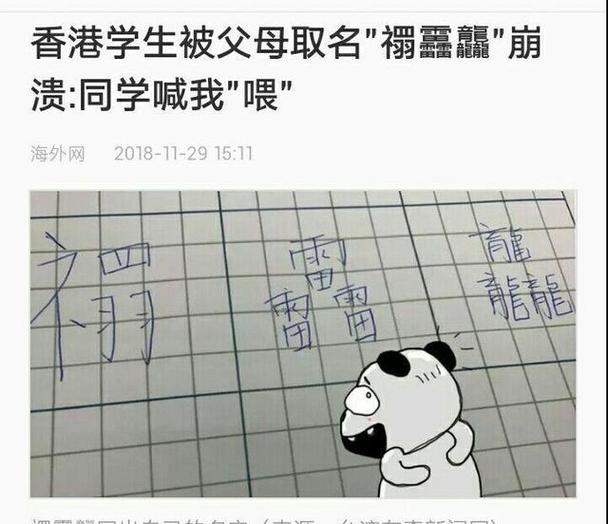 香港学生被父母取名"禤靐龘"崩
溃:同学喊我"喂"
海外网 2018-11-29 15:11
禤 靐 龘